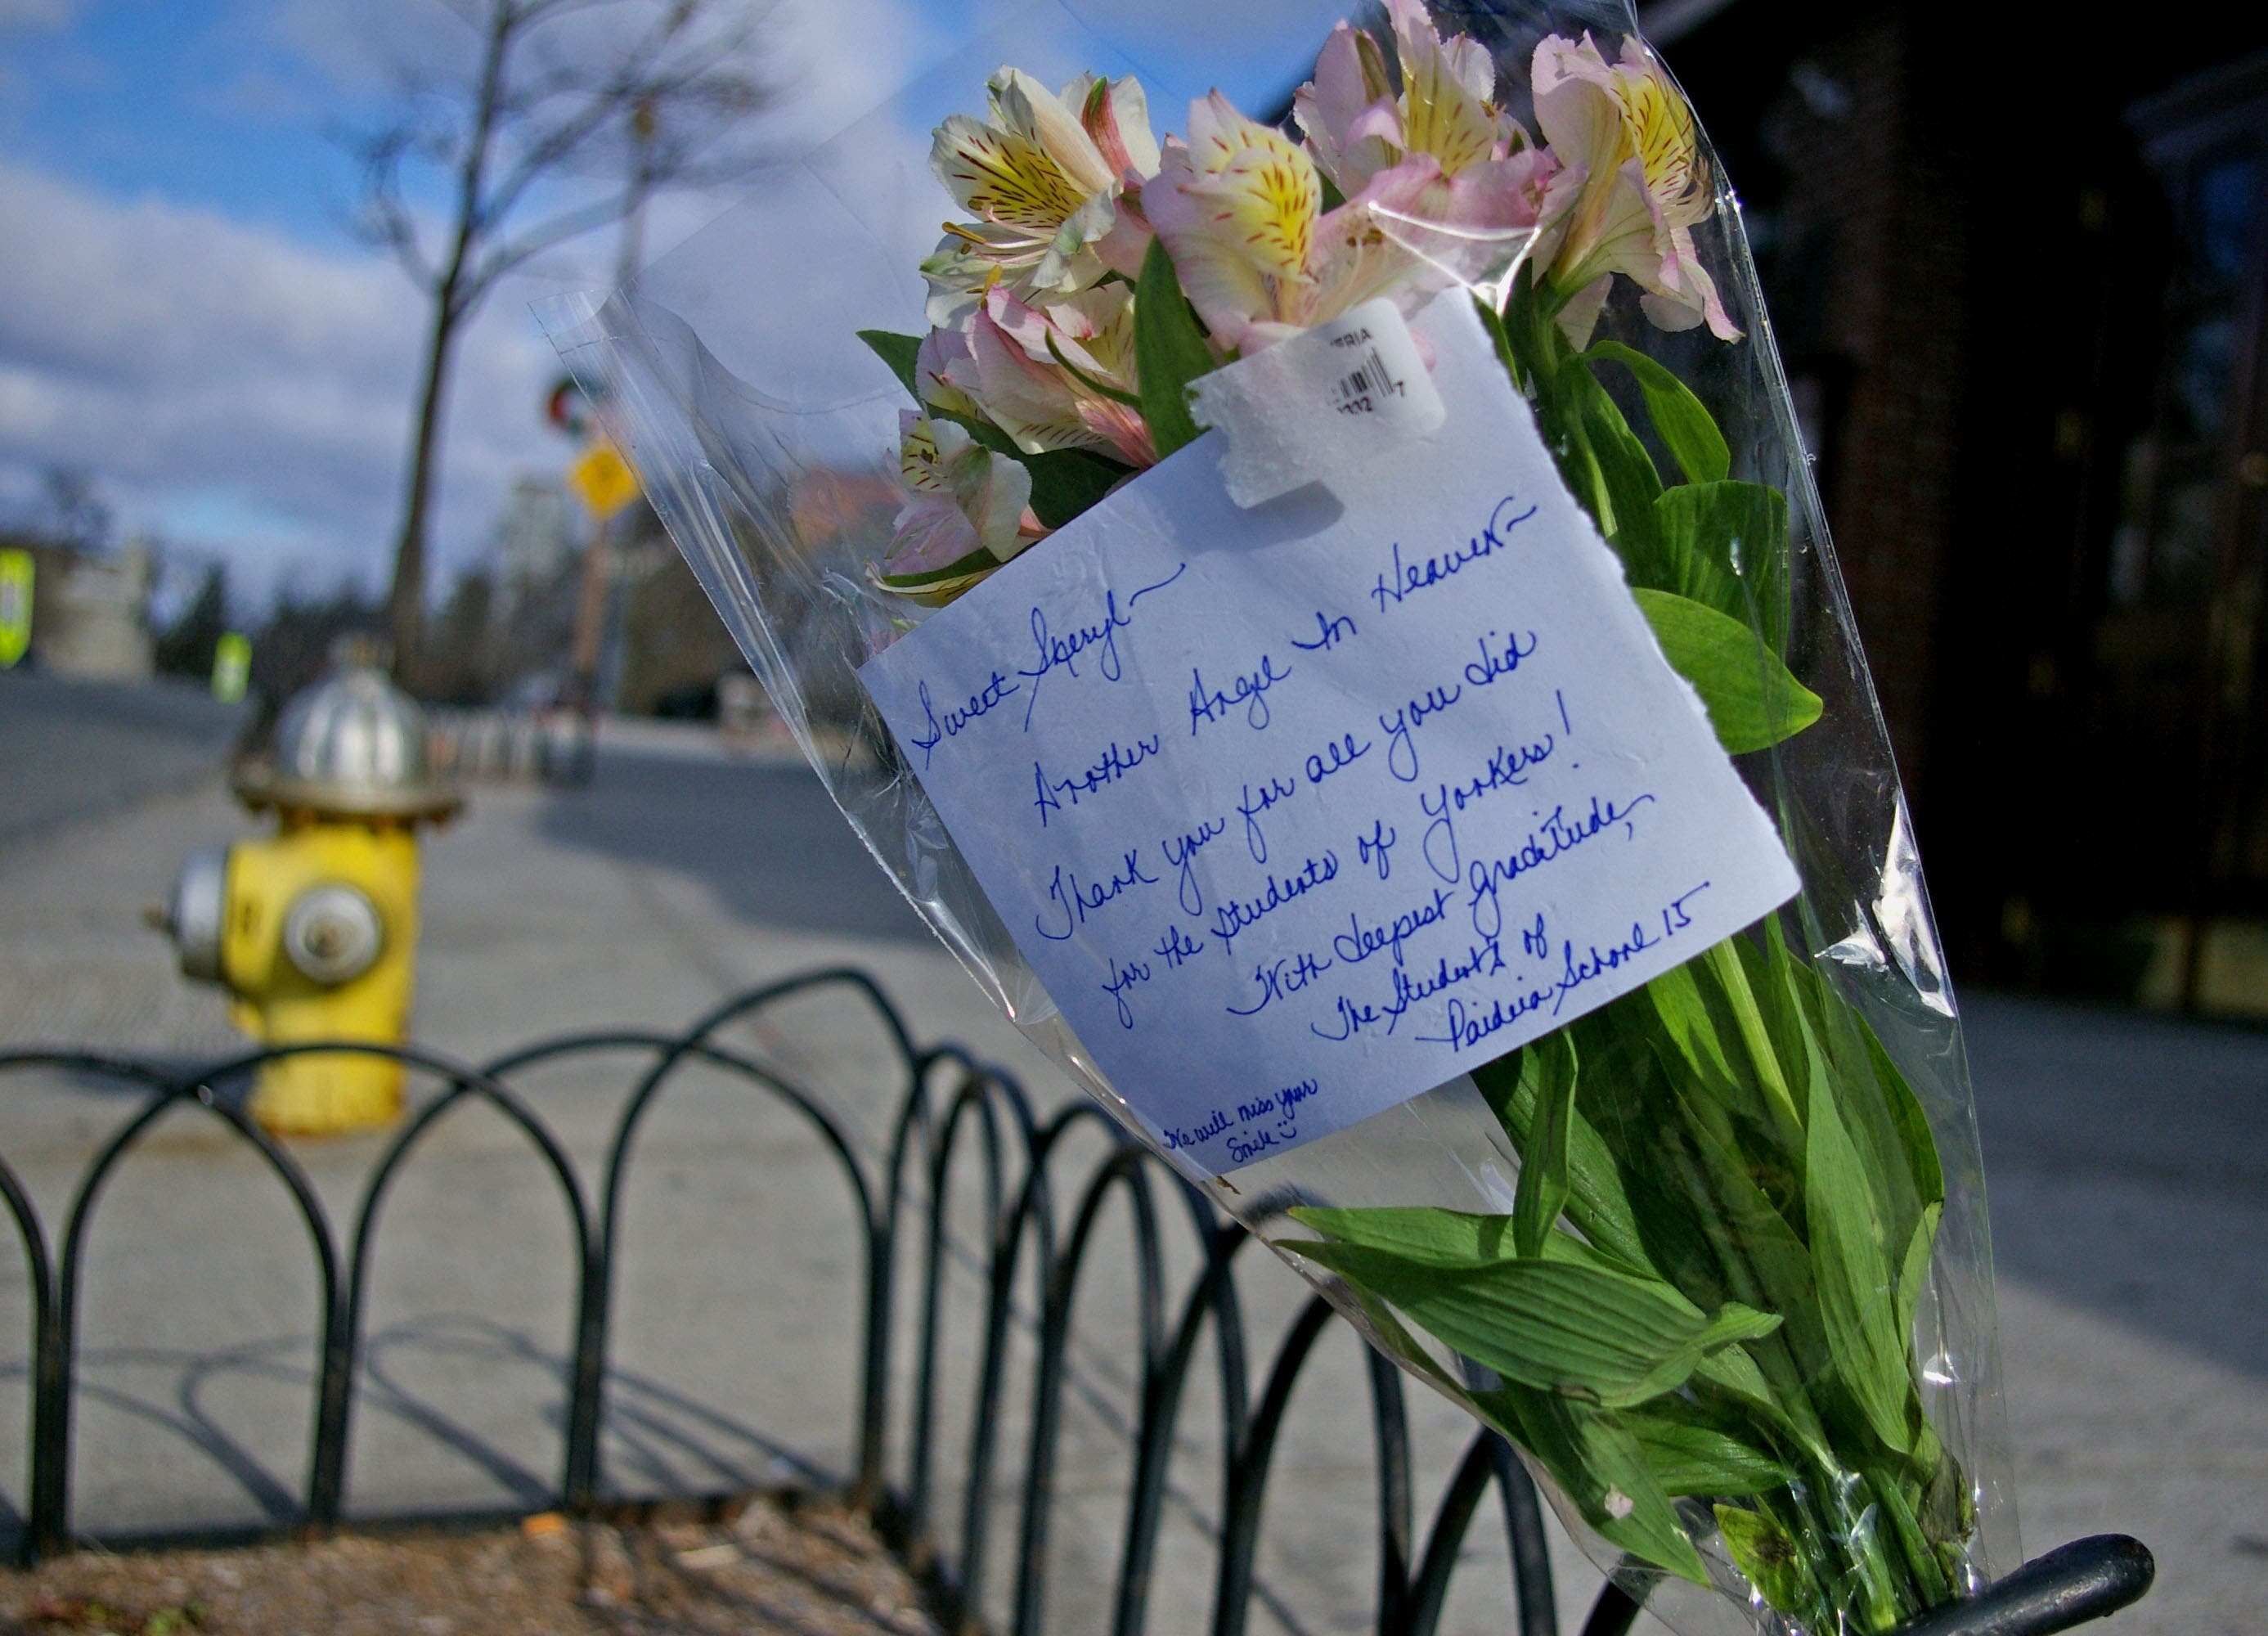 Sweet Sheryl~
Another Angel In Heaven~
Thank you for all you did
for the students of Yonkers!
With deepest gratitude,
The Students of
Paideia School 15
We will miss your
Smile
7